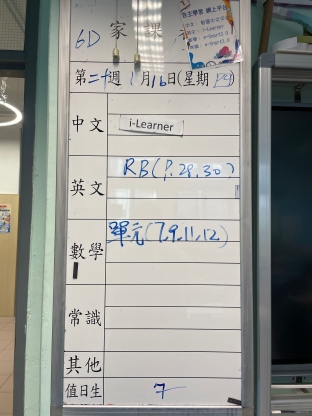 自主學習 網上平台
6D 家課
第二十週 1月16日(星期四)
中文
i-Learner
英文
RB(P.29,30)
數學
單元(7,9,11,12)
常識
其他
值日生
7